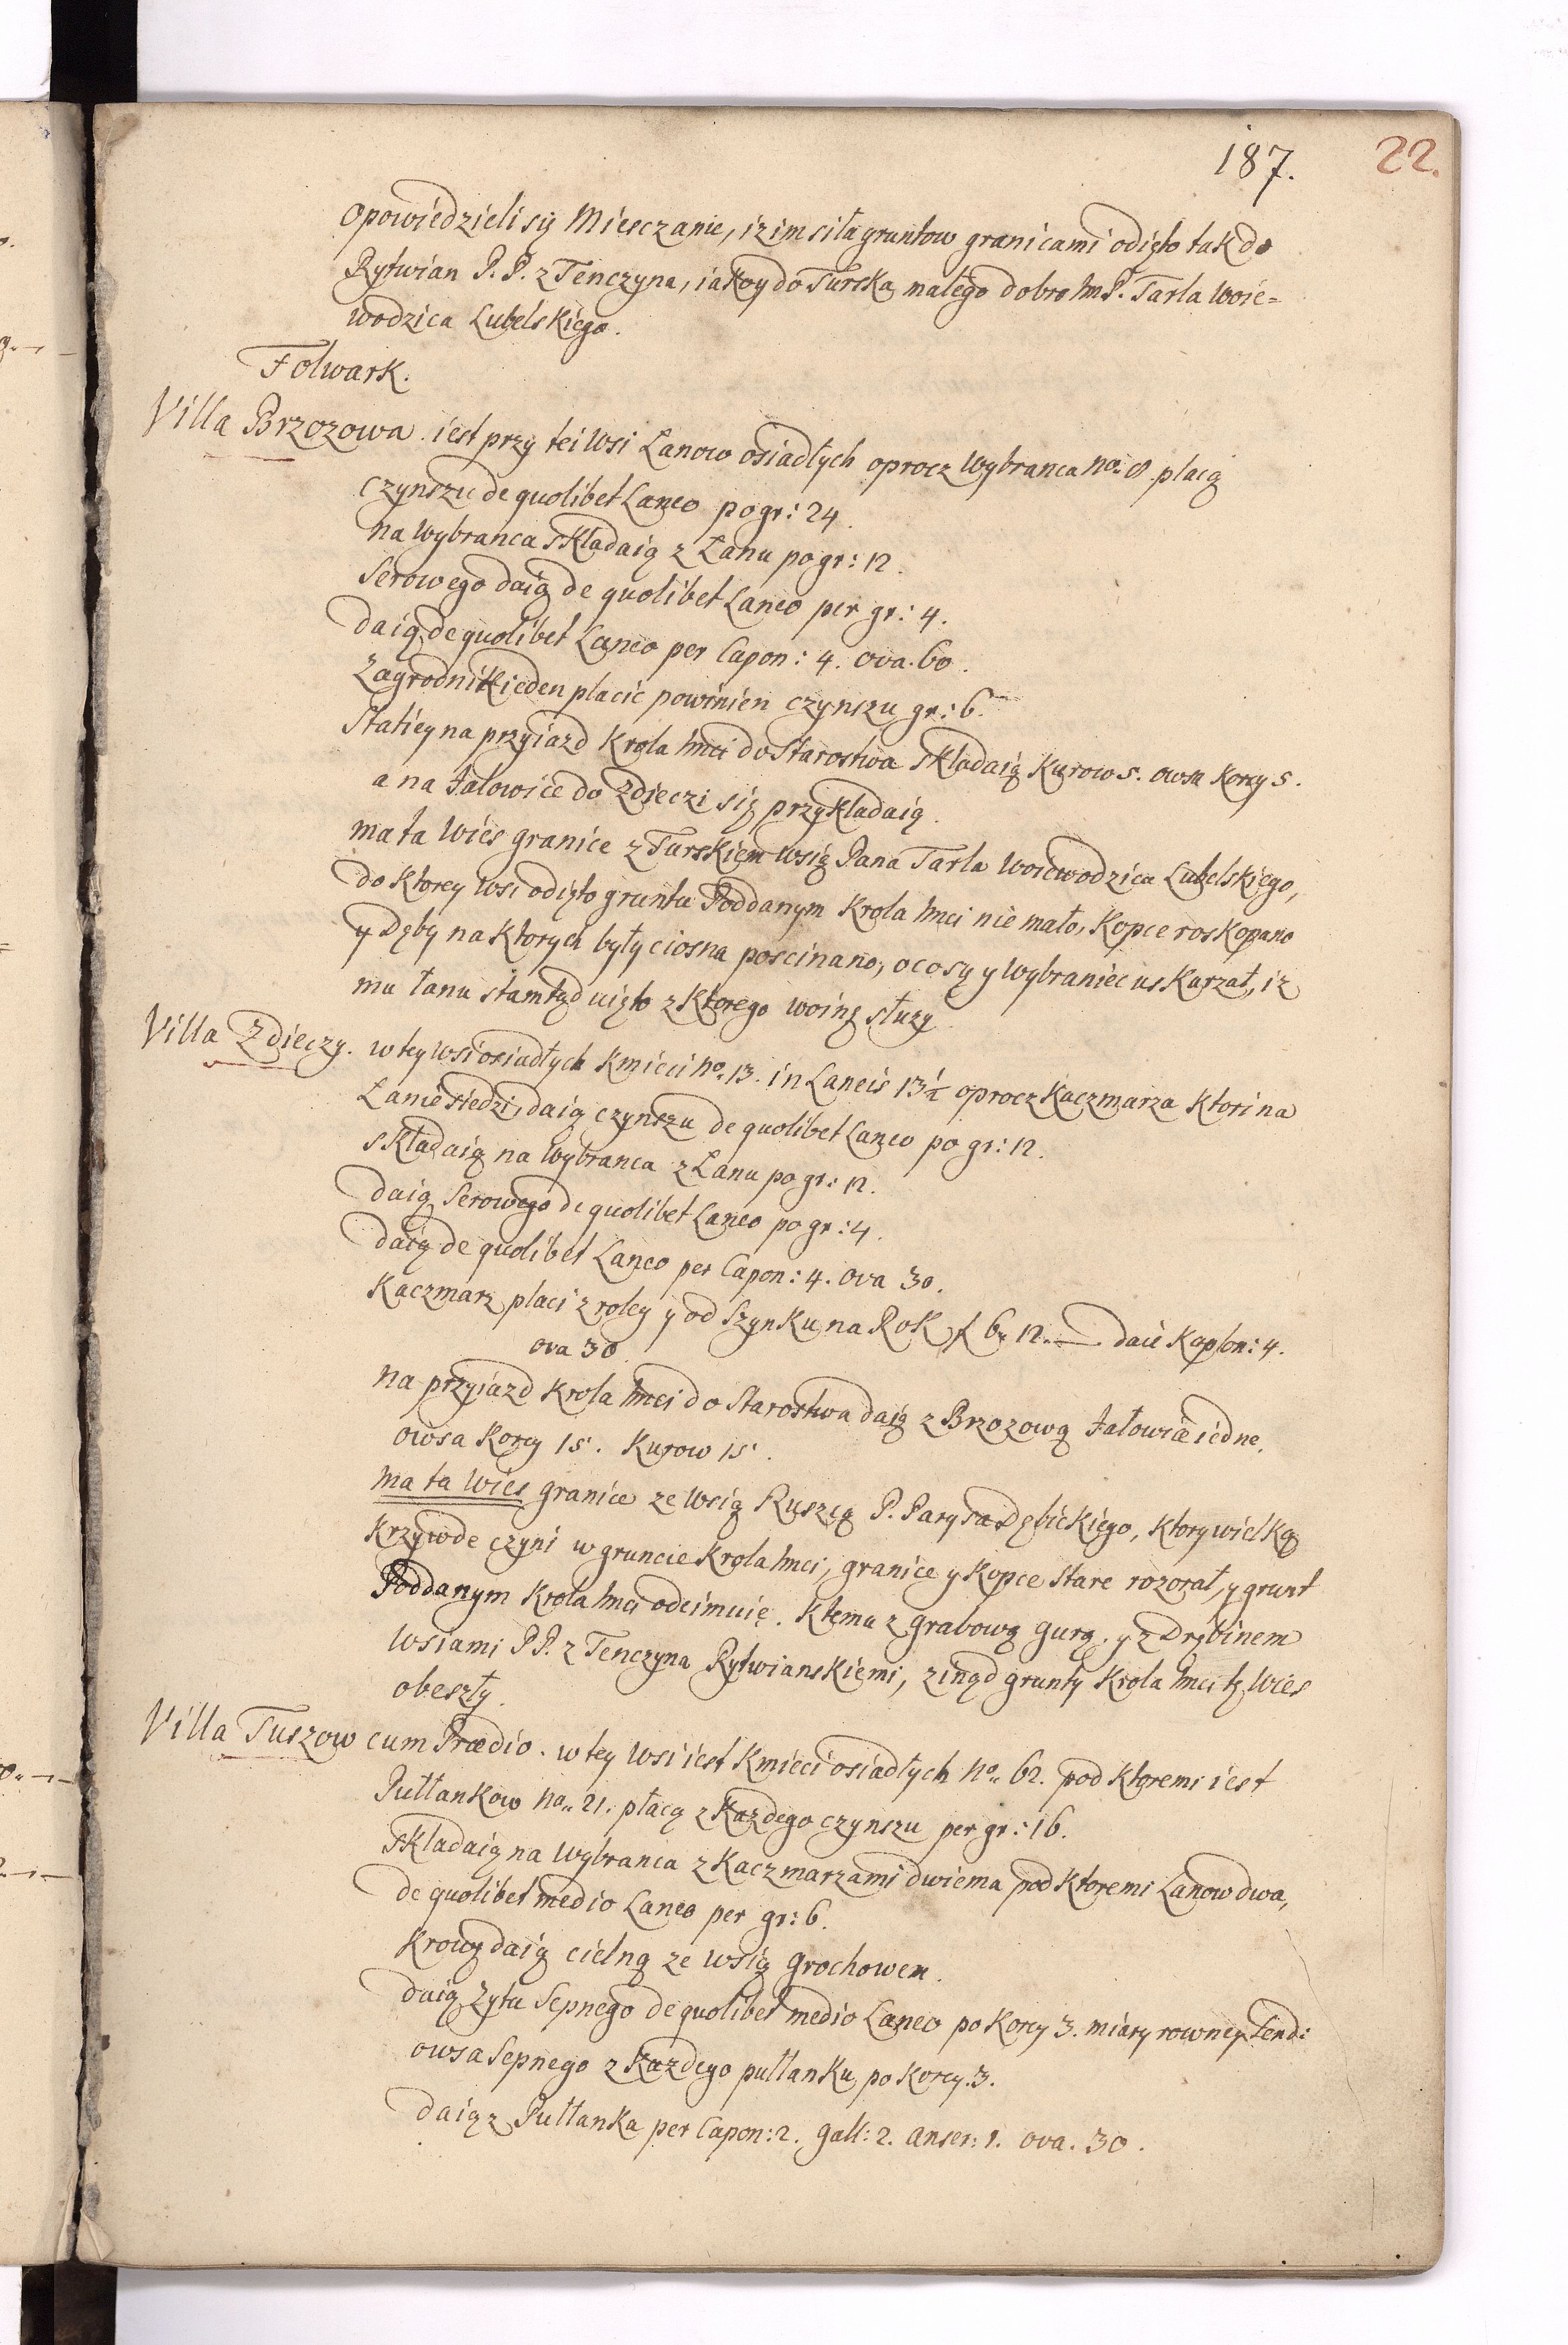 187. 22.
Opowiedzieli się Miesczanie, iz im siła gruntow granicami odięto tak do
Rytwian P. P. z Tenczyna, iako y do Turska małego dobr Im P. Tarla Woie=
wodzica Lubelskiego.
Folwark.
Villa Brzozowa. iest przy tei Wsi Lanow osiadłych oprocz Wybranca no. 8. płacą
czynszu de quolibet Laneo po gr: 24.
na Wybranca składaią z Łanu po gr: 12.
Serowego daią de quolibet Laneo per gr: 4.
daią de quolibet Laneo per Capon: 4. ova. 60.
Zagrodnik ieden placic powinien czynszu gr: 6.
Staticy na przyiazd Krola Imci do Starostwa składaią Kurow 5. owsa Korcy 5.
a na Jałowice do Zdieczi się przykładaią.
ma ta Wies granice z Turskiem wsią Pana Tarla Woiewodzica Lubelskiego,
do Ktorey wsi odięto gruntu Poddanym Krola Imci nie mało, Kopce roskopano
y Dęby na Ktorych były ciosna poscinano, o co się y Wybraniec uskarzał, iz
mu łanu stamtąd uięto z Ktorego woinę słuzy.
Villa Zdieczy. w tey wsi osiadłych Kmieci no. 13. in Laneis 13½ oprocz Kaczmarza Ktori na
Łanie siedzi, daią czynszu de quolibet Laneo po gr: 12.
składaią na Wybranca z Łanu po gr: 12.
daią Serowego de quolibet Laneo po gr: 4.
daią de quolibet Laneo per Capon: 4. ova 30.
Kaczmarz placi z roley y od Szynku na Rok f 6, 12. — daie Kapłon: 4.
ova 30.
na przyiazd Krola Imci do Starostwa daią z Brzozową Jałowice iedne.
owsa Korcy 15. Kurow 15.
ma ta Wies granice ze wsią Ruszczą P. Parysa Dębickiego, Ktory wielką
Krzywde czyni w gruncie Krola Imci, granice y Kopce Stare rozorał, y grunt
Poddanym Krola Imci odeimuię. K temu z Grabową gurą, y z Drzbinem
Wsiami PP. z Tenczyna Rytwianskiemi, z inąd grunty Krola Imci tę Wies
obeszły.
Villa Tuszow cum Prædio. w tey wsi iest Kmieci osiadłych no. 62. pod Ktoremi iest
Pułłankow no. 21. płacą z Kazdego czynszu per gr: 16.
składaią na Wybranca z Kaczmarzami dwiema pod Ktoremi Lanow dwa,
de quolibet medio Laneo per gr: 6.
Krowę daią cielną ze wsią Grochowem.
daią Zyta Sepnego de quolibet medio Laneo po Korcy 3. miary rowney Send:
owsa Sepnego z Kazdego pułłanku po Korcy. 3.
daią z Pułłanka per Capon: 2. Gall: 2. Anser: 1. ova. 30.